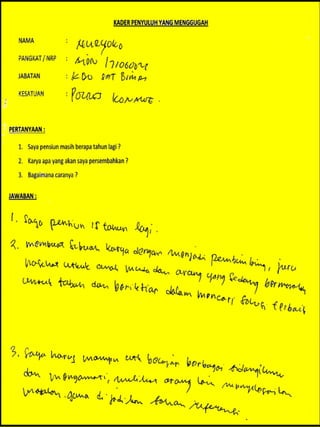 KADER PENYULUH YANG MENGGUGAH
NAMA :
PANGKAT / NRP :
JABATAN : KBO SAT BINMAS
KESATUAN : POLRES KONAWE.
PERTANYAAN :
1. Saya pensiun masih berapa tahun lagi ?
2. Karya apa yang akan saya persembahkan ?
3. Bagaimana caranya ?
JAWABAN :
1. Saya pensiun 15 tahun lagi.
2. membuat sebuah karya dengan menjadi pembimbing, juru
nasehat untuk anak muda dan orang yang sedang bermasalah
untuk tabah dan berikhtiar dalam mencari solusi terbaik
3. Saya harus mampu utk belajar berbagai bidang ilmu
dan mengamati, melihat orang lain menyelesaikan
masalah guna di jadikan bahan referensi.